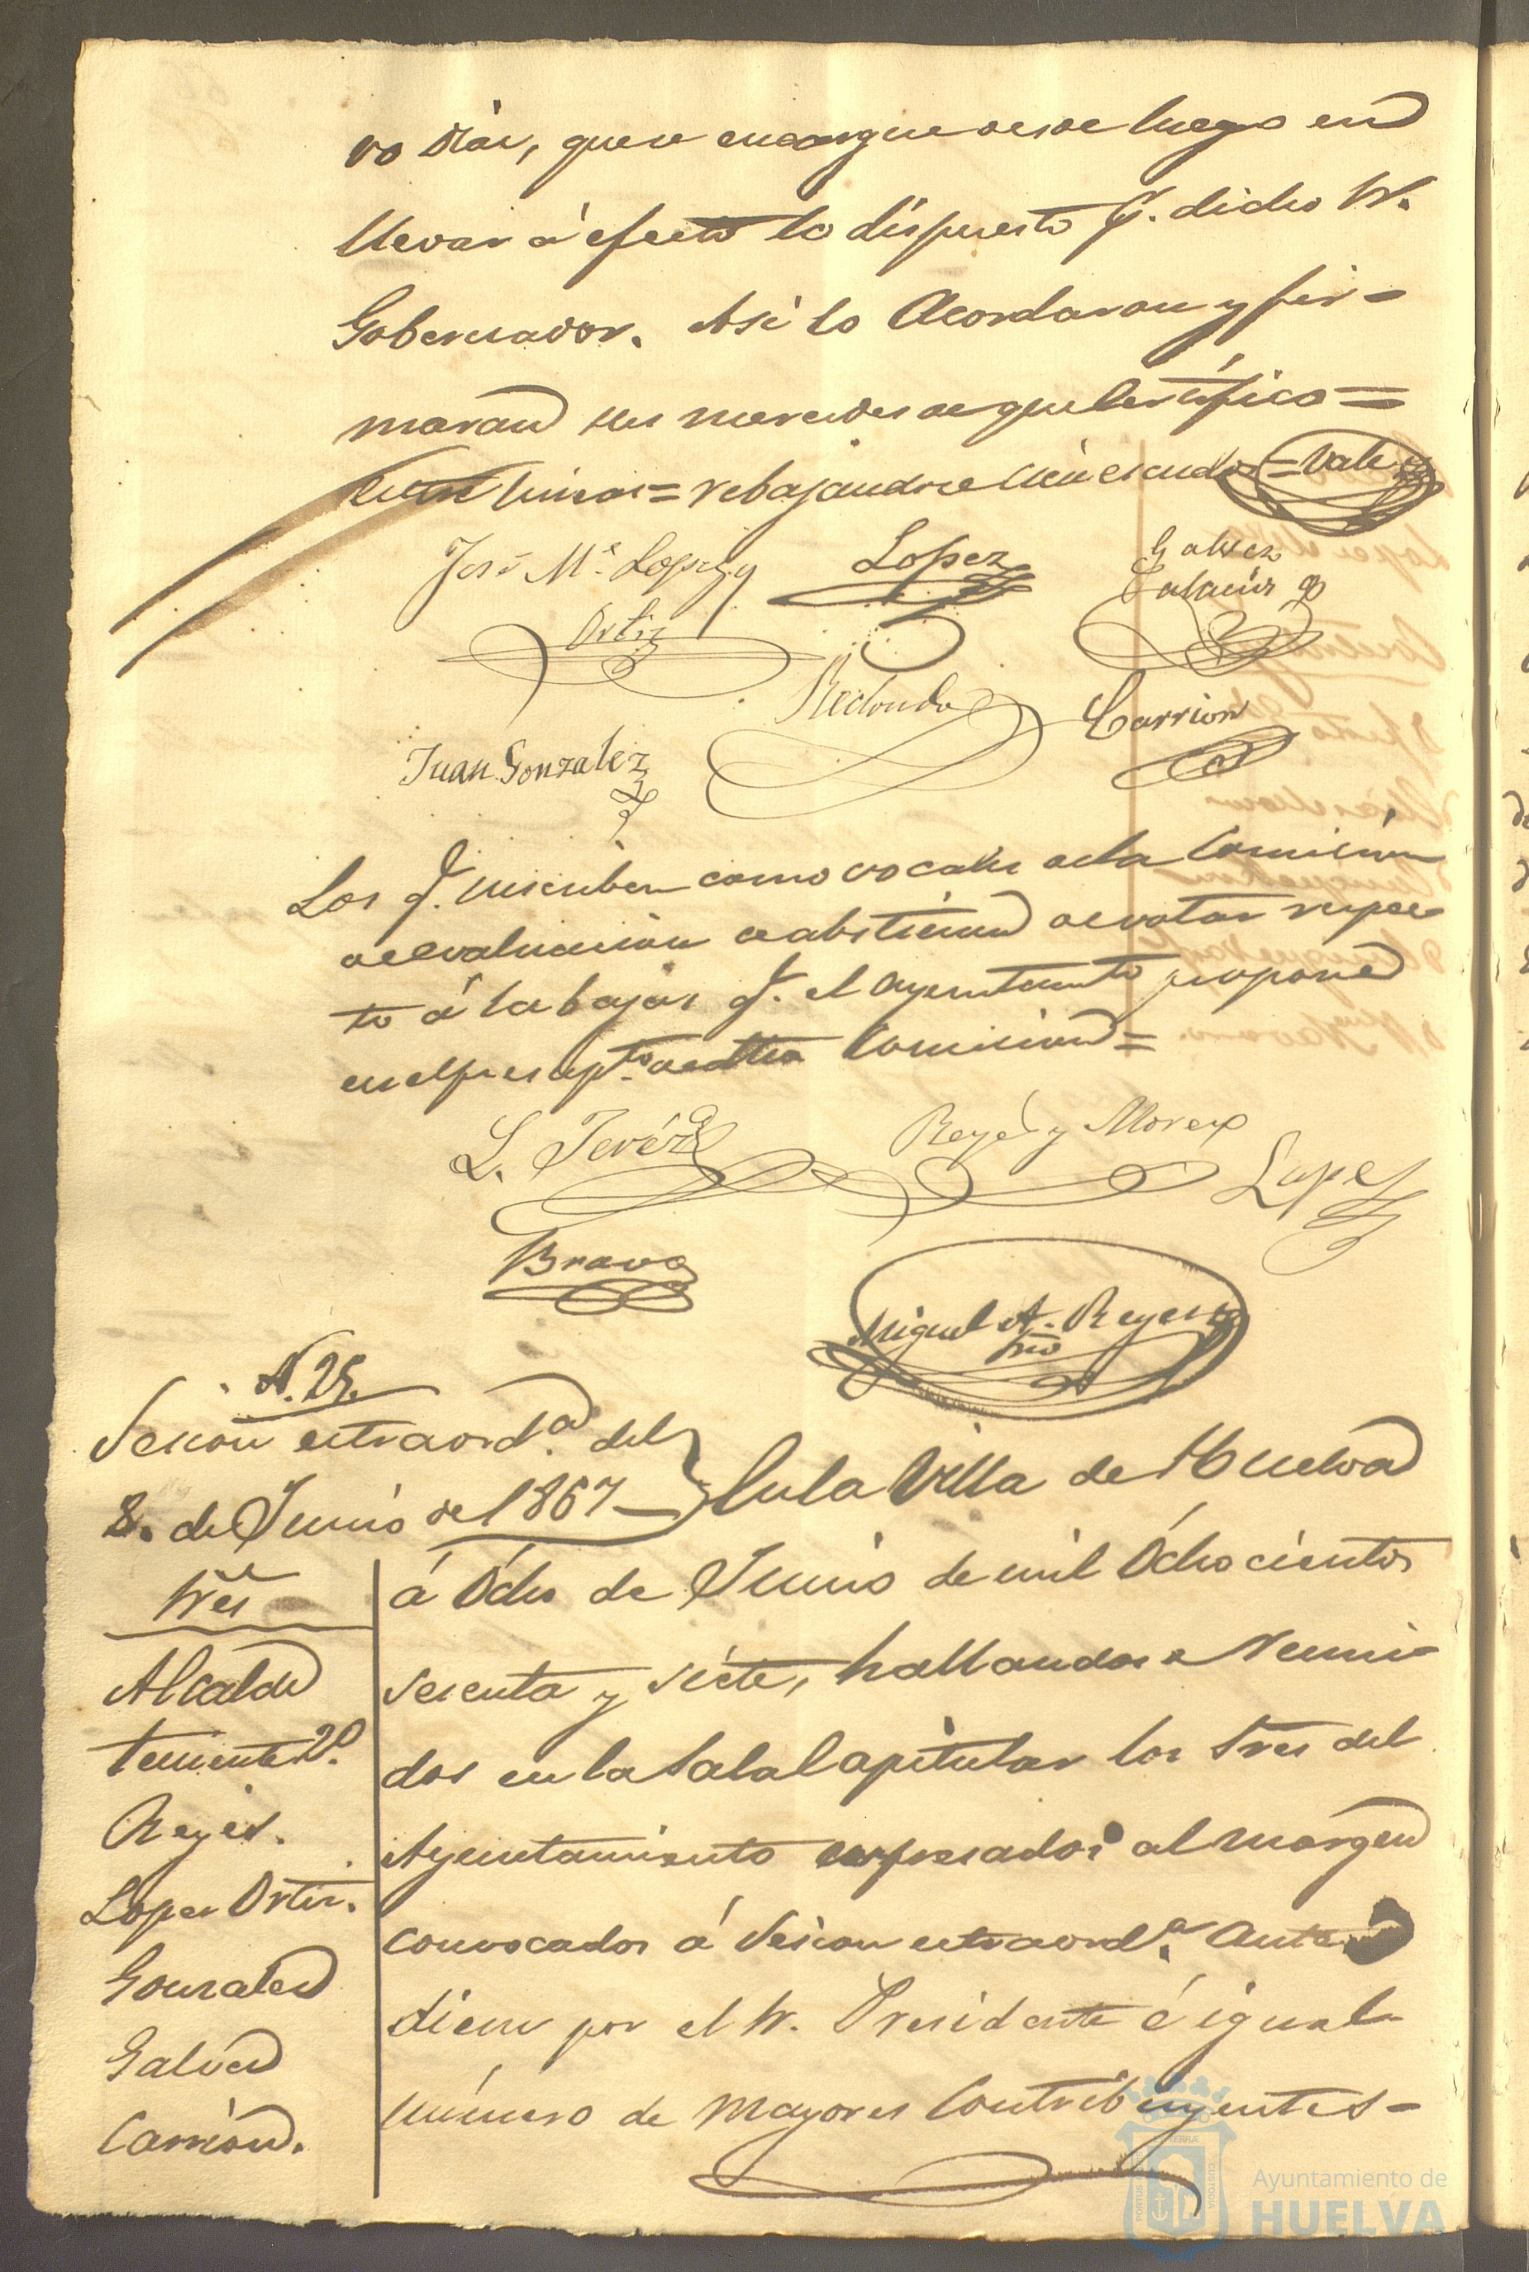 ro Diaz, que se encargue desde luego en
llevar á efecto lo dispuesto p.r dicho Sr.
Gobernador. Asi lo Acordaron y fir=
maran sus mercedes de que certifico=
rebajandose cien escudos = Vale
José M.ª Lopez y
Ortiz
Lopez
Galvez
Palacios
Redondo
Carrion
Juan Gonzalez
Los q.e suscriben como vocales de la Comision
de evaluacion se abstienen de votar respec
to á la bajas q.e el ayuntamiento propone
en el presup.to de dha Comision=
L. Jeréz
Reyes y Moreno
Lopez
Bravo
Miguel A. Reyes
srio
N. 25.
Sesion extraord.a del
8. de Junio de 1867
Sres
Alcalde
teniente 2º.
Reyes.
Lopez Ortiz.
Gonzalez
Galvez
Carrion.
En la Villa de Huelva
á Ocho de Junio de mil Ochocientos
sesenta y siete, hallandose Reuni
dos en la Sala Capitular los Sres del
Ayuntamiento expresados al margen
convocados á Sesion extraord.a ante
diem por el Sr. Presidente é igual
número de mayores Contribuyentes=
Ayuntamiento de
HUELVA